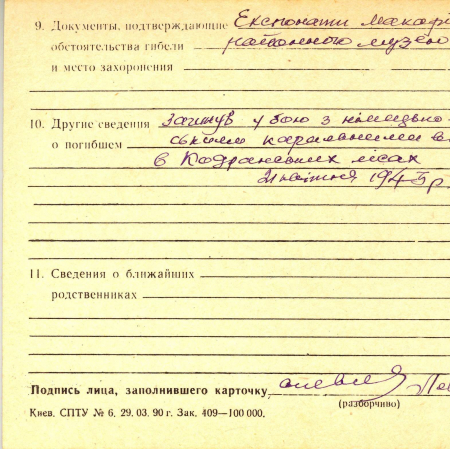 9. Документы, подтверждающие Експонати Макар
обстоятельства гибели районного музею
и место захоронения
10. Другие сведения Загинув у бою з німецько-
о погибшем ськими карателями в
в Кодранських лісах
21 квітня 1943 р
11. Сведения о ближайших
родственниках
Подпись лица, заполнившего карточку
(разборчиво)
Киев. СПТУ № 6. 29. 03. 90 г. Зак. 409—100 000.